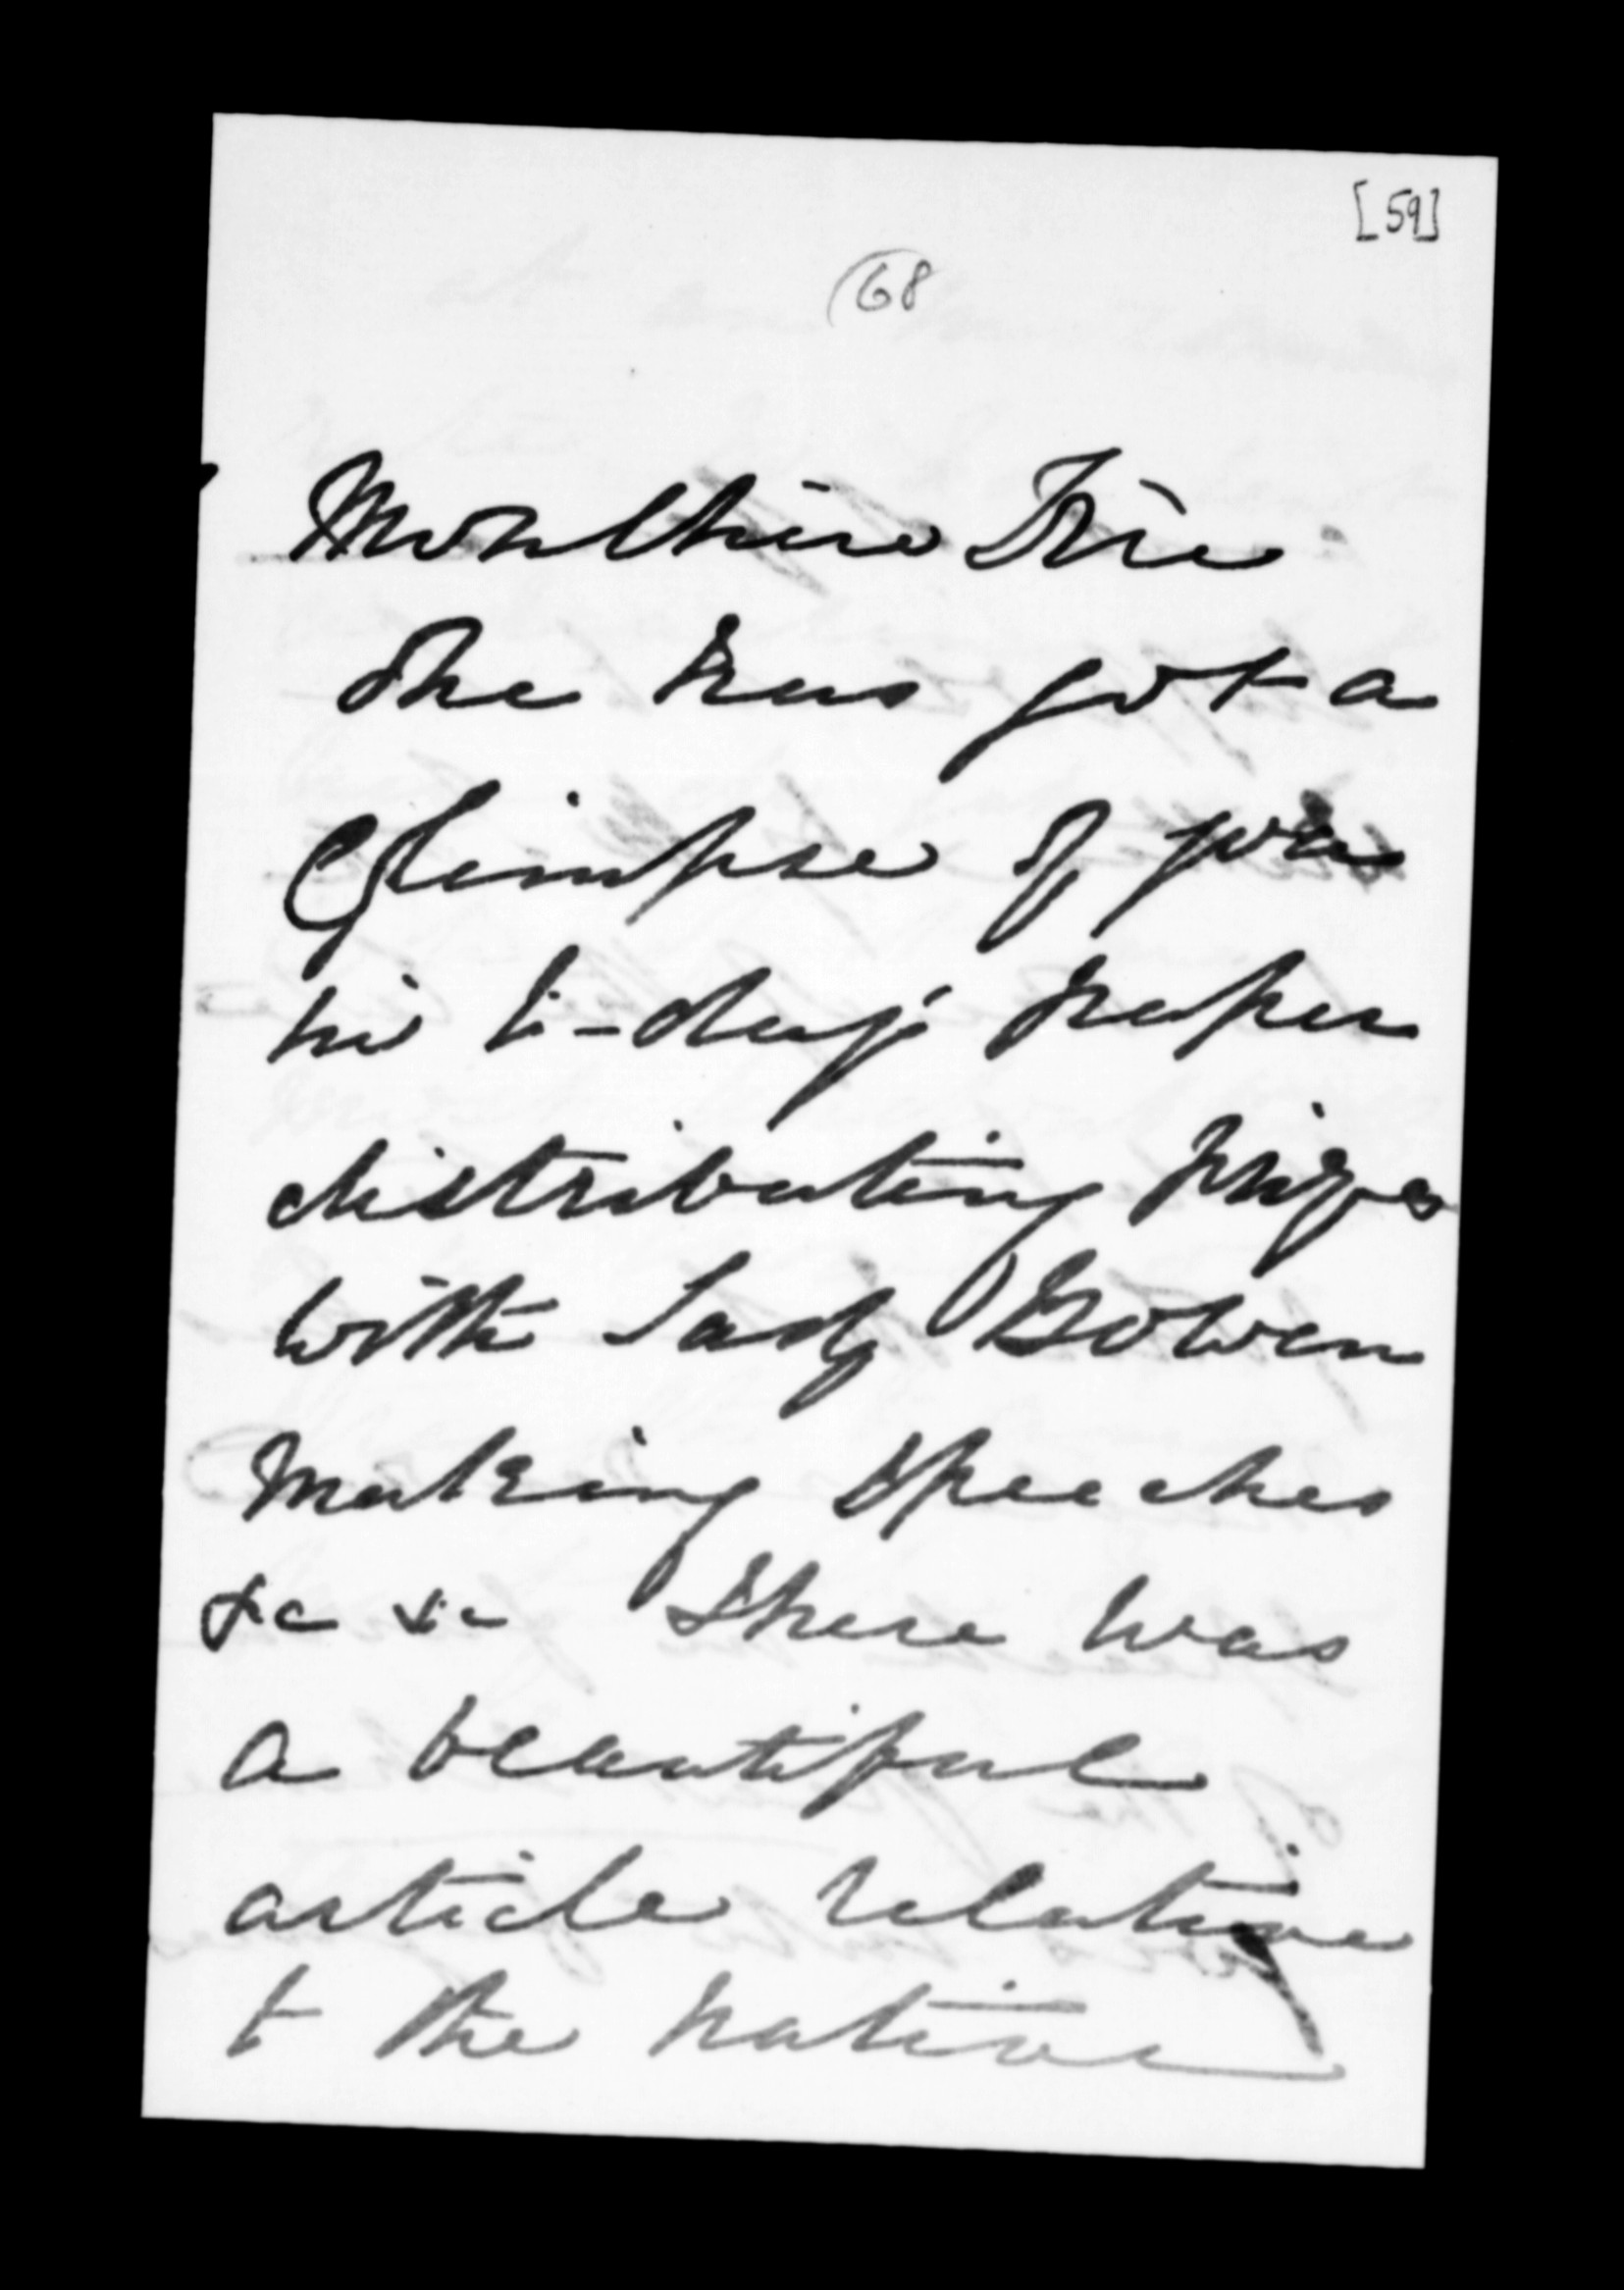 [59]
(68
Mon Chère Trie
She has got a
Glimpse of you
in to-day's paper
distributing prizes
with Lady Bowen
making speeches
&c &c There was
a beautiful
article relative
to the native